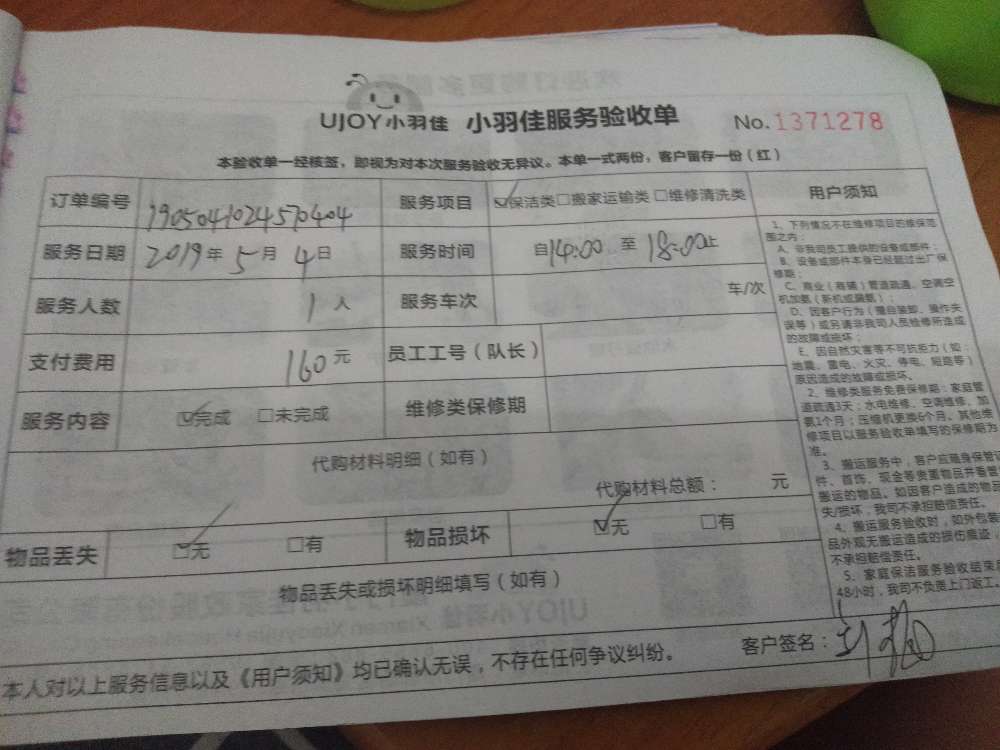 UJOY小羽佳 小羽佳服务验收单 No.1371278
本验收单一经核签，即视为对本次服务验收无异议。本单一式两份，客户留存一份（红）
订单编号 1905041024570404 服务项目 ☑保洁类□搬家运输类□维修清洗类
服务日期 2019年5月4日 服务时间 自14:00至18:00止
服务人数 1人 服务车次 车/次
支付费用 160元 员工工号（队长）
服务内容 ☑完成 □未完成 维修类保修期
代购材料明细（如有）
代购材料总额： 元
物品丢失 ☑无 □有 物品损坏 ☑无 □有
物品丢失或损坏明细填写（如有）
本人对以上服务信息以及《用户须知》均已确认无误，不存在任何争议纠纷。 客户签名：
用户须知
1、下列情况不在维修项目的维保范
围之内：
A、非我司员工提供的设备或部件；
B、设备或部件本身已经超过出厂保
修期；
C、商业（商铺）管道疏通、空调空
机加氨（新机或漏氨）；
D、因客户行为（擅自装卸、操作失
误等）或另请非我司人员检修所造成
的故障或损坏；
E、因自然灾害等不可抗拒力（如：
地震、雷电、火灾、停电、短路等）
原因造成的故障或损坏。
2、维修类服务免费保修期：家庭管
道疏通3天；水电维修、空调维修、加
氨1个月；压缩机更换6个月。其他维
修项目以服务验收单填写的保修期为
准。
3、搬运服务中，客户应随身保管证
件、首饰、现金等贵重物品并看管
搬运的物品。如因客户造成的物品
失/损坏，我司不承担赔偿责任。
4、搬运服务验收时，如外包装
品外观无搬运造成的损伤痕迹，
不承担赔偿责任。
5、家庭保洁服务验收结束后
48小时，我司不负责上门返工。